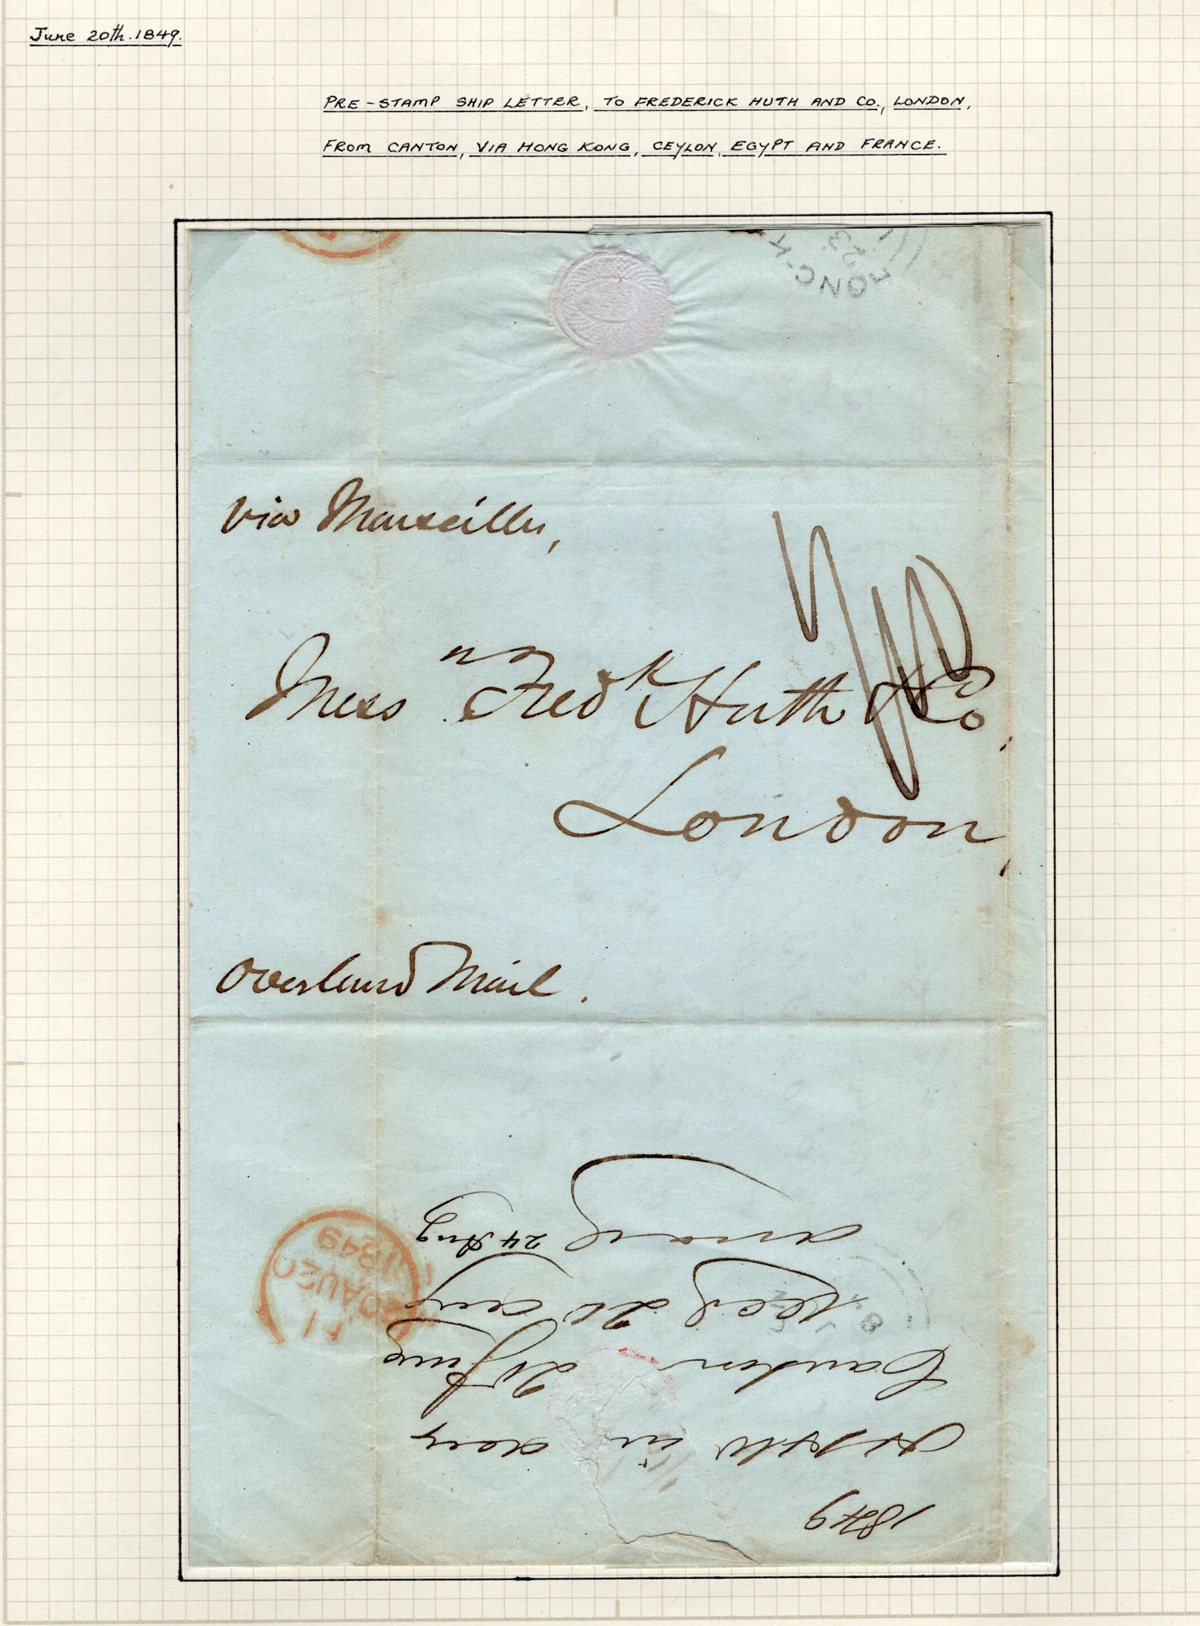 June 20th. 1849.
PRE-STAMP SHIP LETTER, TO FREDERICK HUTH AND CO., LONDON,
FROM CANTON, VIA HONG KONG, CEYLON, EGYPT AND FRANCE.
HONG-K
via Marseilles,
Mess rs Fredk Huth & Co,
London,
Overland Mail.
1849
in
Canton 20 June
recd 20 aug
24 Aug
20 AU 20
1849